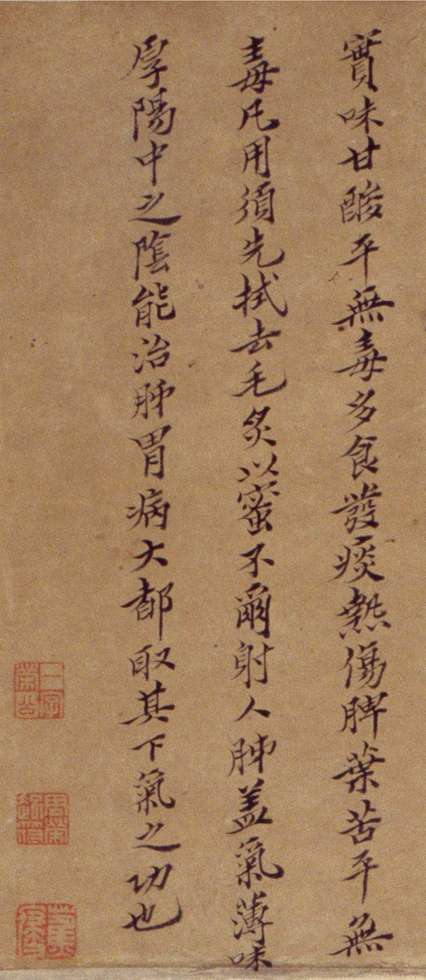 實味甘酸平無毒多食發痰熱傷脾葉苦平無
毒凡用須先拭去毛炙以蜜不爾射人肺蓋氣薄味
厚陽中之陰能治肺胃病大都取其下氣之功也